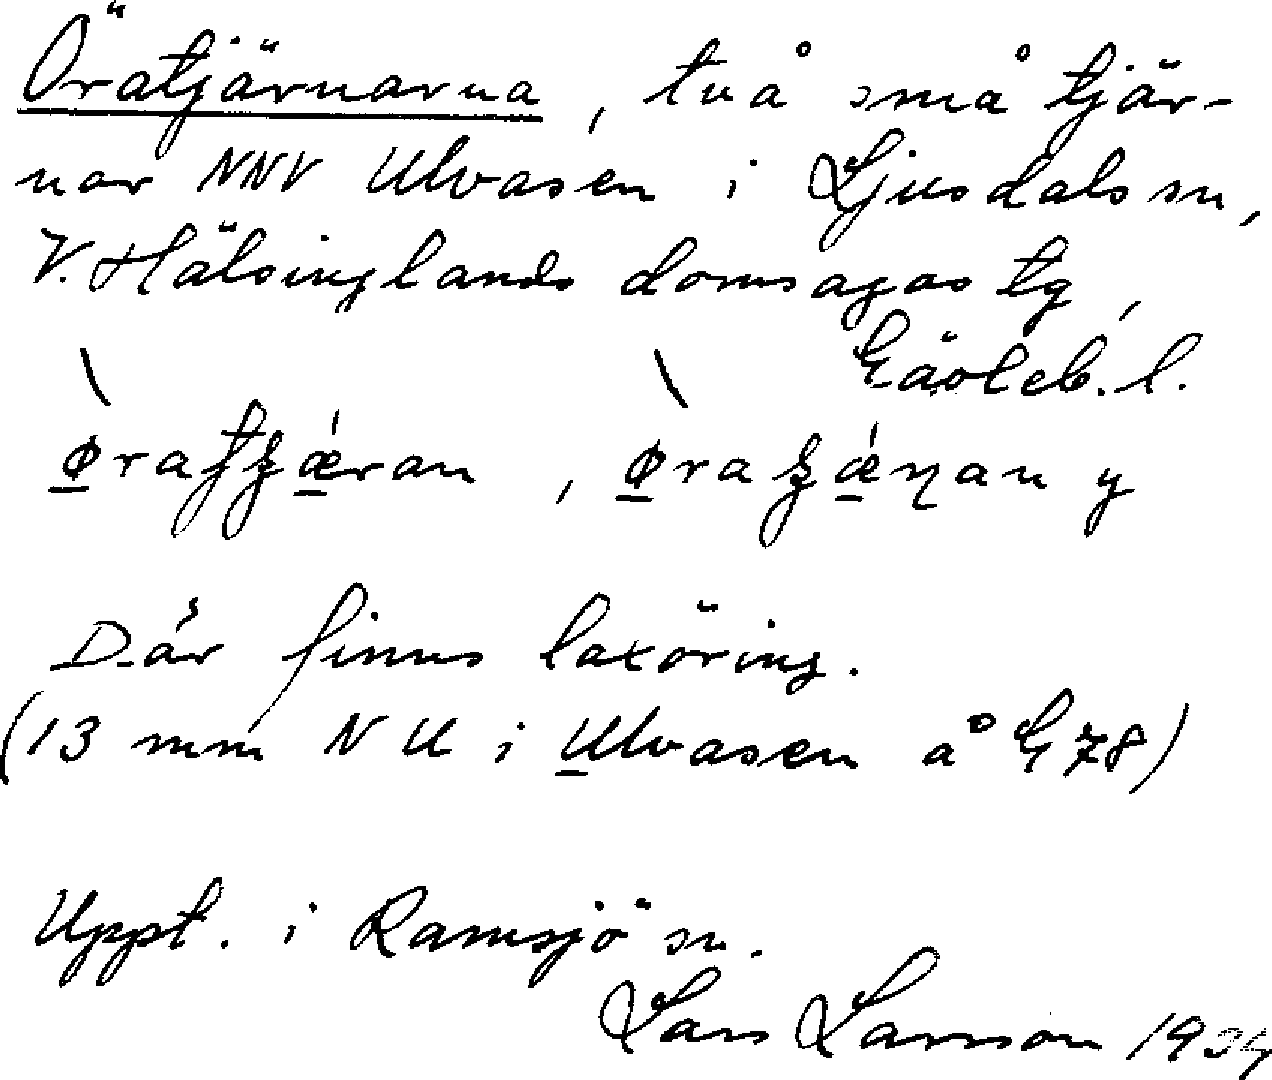 Öratjärnarna, två små tjär-
nar NNV Ulvasen i Ljusdals sn,
V. Hälsinglands domsagas tg,
Gävleb. l.
ø̲ratʒǽ̲ran, ø̲raʒǽ̲ɳan y
Där finns laxöring.
(13 mm N U i U̲lvasen å G 78)
Uppt. i Ramsjö sn.
Lars Larsson 1934